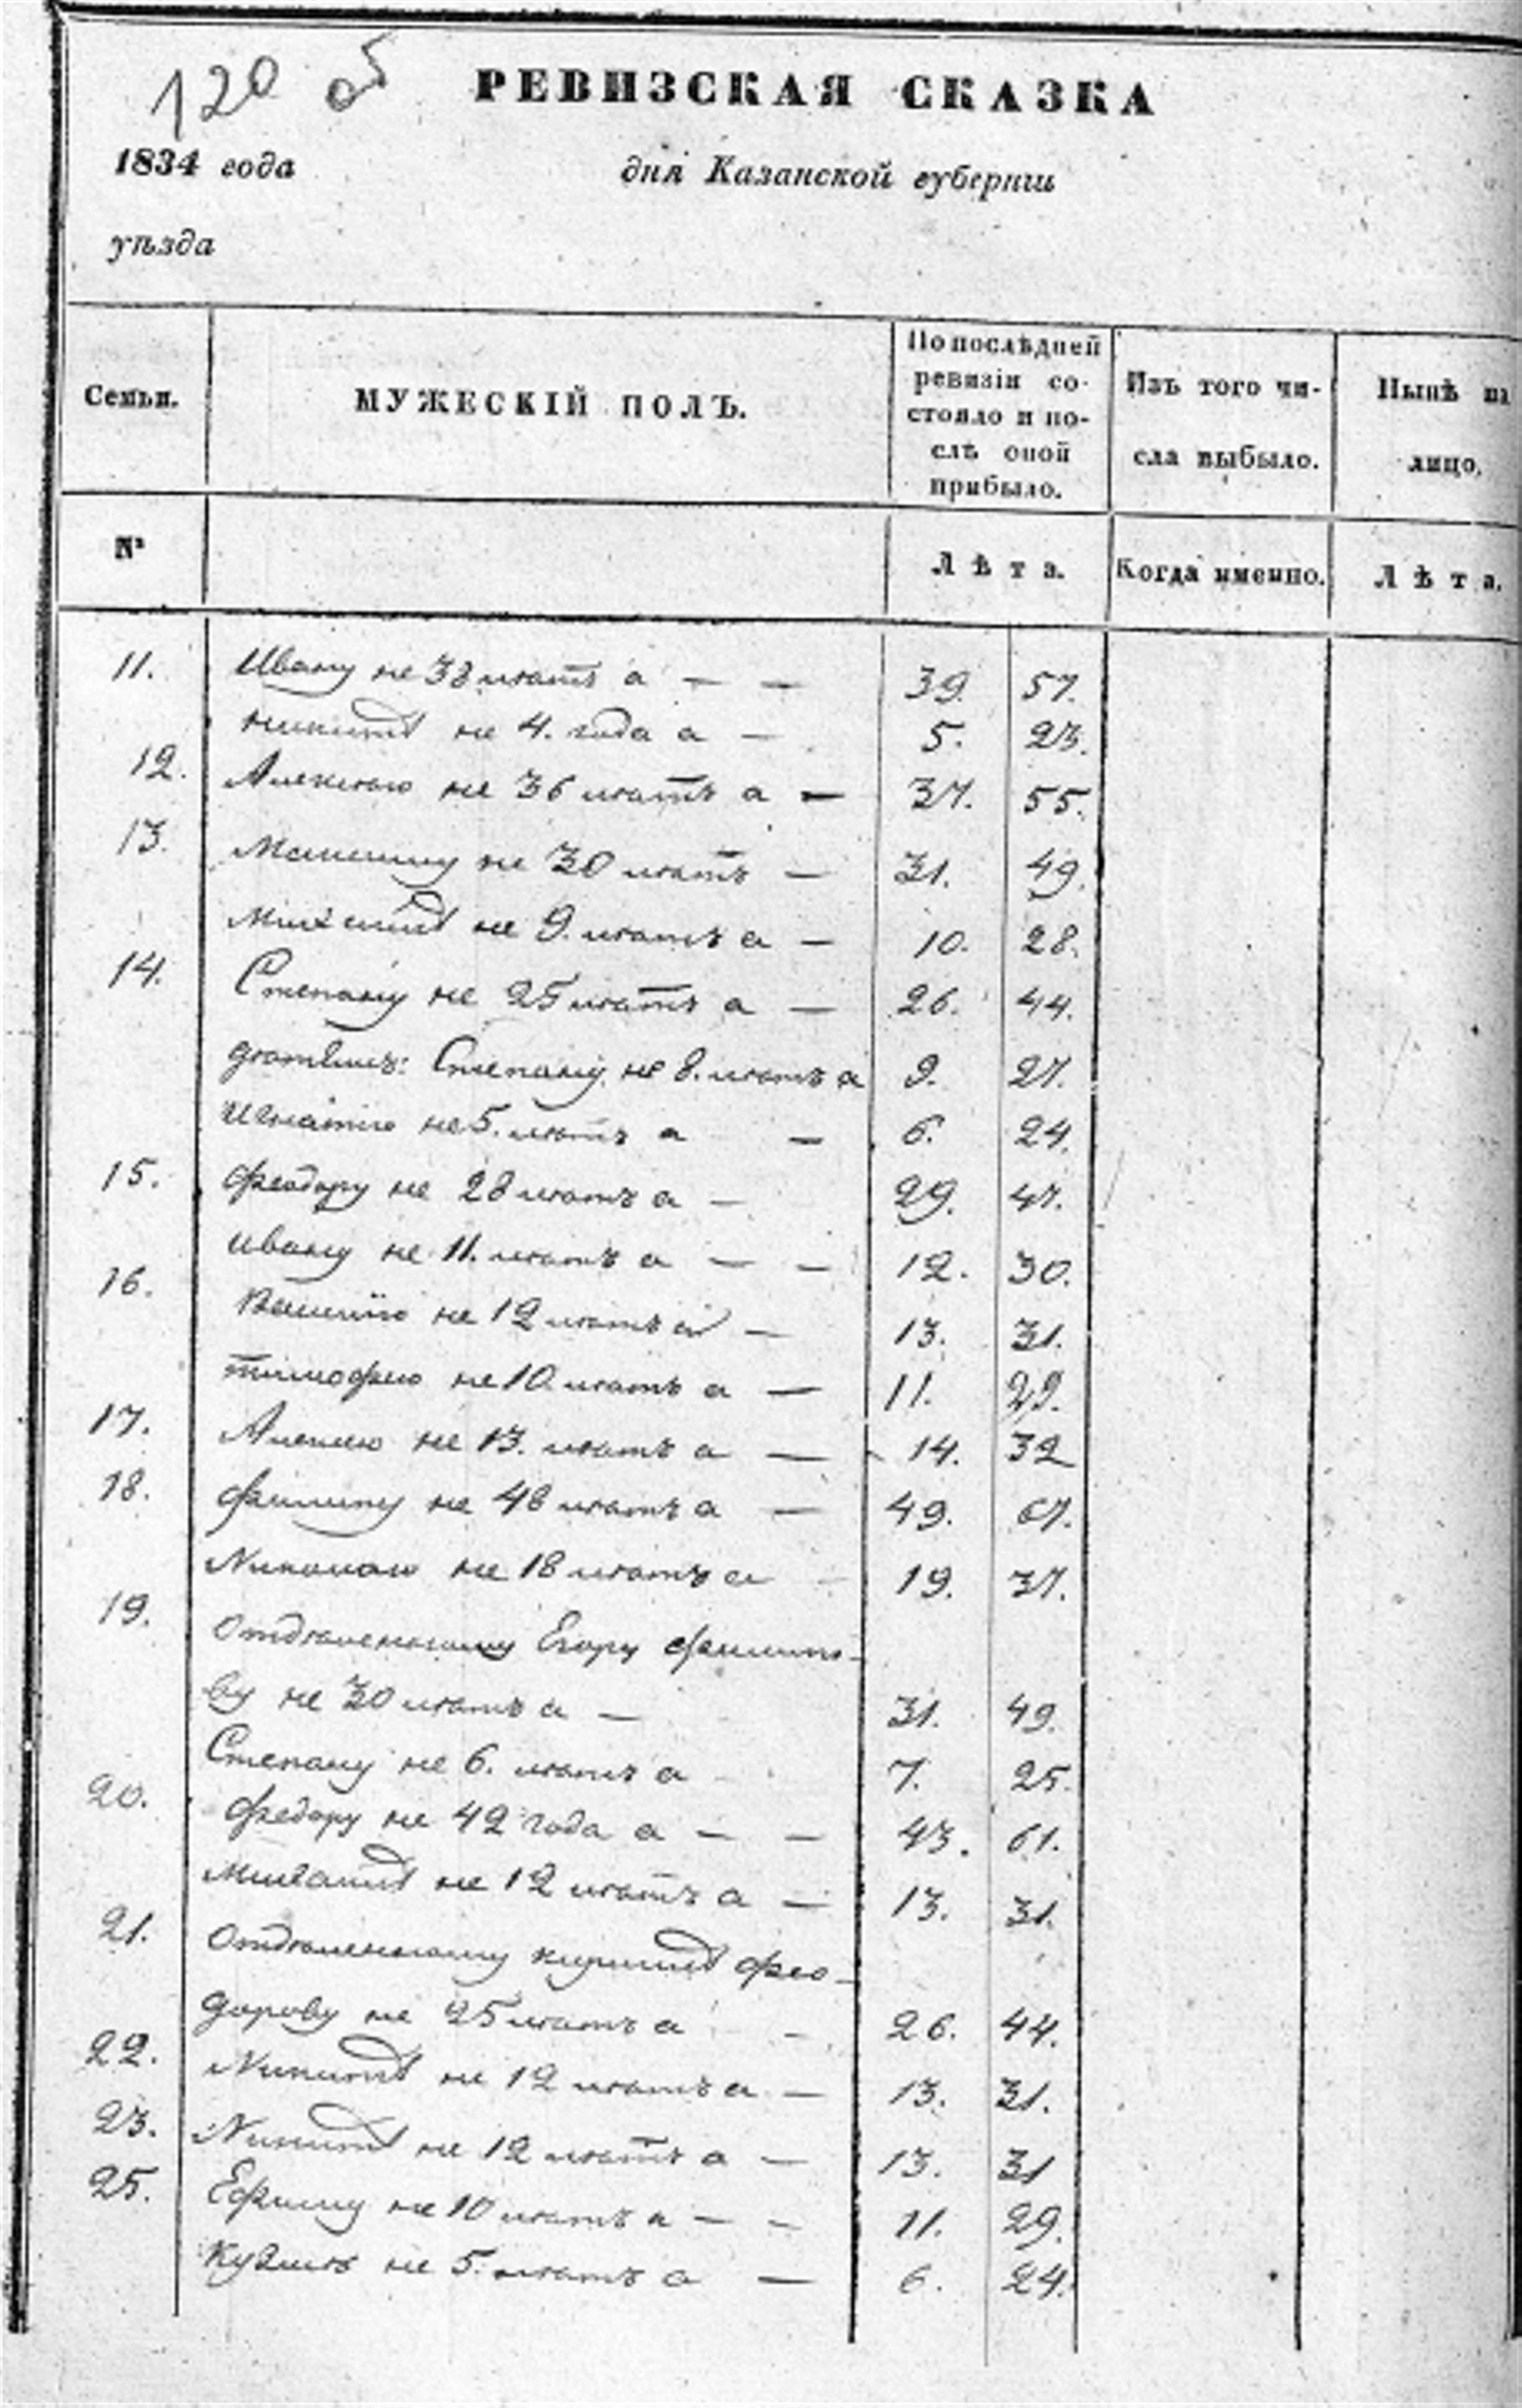 120 об
РЕВИЗСКАЯ СКАЗКА
1834 года дня Казанской губернiи
уѣзда
Семьи. МУЖЕСКIЙ ПОЛЪ. По послѣдней ревизiи со- стояло и по- слѣ оной прибыло. Изъ того чи- сла выбыло. Нынѣ на лицо.
№ Лѣта. Когда именно. Лѣта.
11. Ивану не 38 лѣтъ а — — 39. 57.
никитѣ не 4. года а — 5. 23.
12. Алексѣю не 36 лѣтъ а — 37. 55.
13. Максиму не 30 лѣтъ — 31. 49.
Михейлѣ не 9. лѣтъ а — 10. 28.
14. Степану не 25 лѣтъ а — 26. 44.
дѣтямъ: Степану не 8. лѣтъ а 9. 27.
игнатiю не 5. лѣтъ а — 6. 24.
15. Феодору не 28 лѣтъ а — 29. 47.
ивану не 11. лѣтъ а — — 12. 30.
16. Василiю не 12 лѣтъ а — 13. 31.
тимофею не 10. лѣтъ а — 11. 29.
17. Алексею не 13. лѣтъ а — 14. 32
18. Филипу не 48 лѣтъ а — 49. 67.
Николаю не 18 лѣтъ а — 19. 37.
19. Отдѣленному Егору Филипо-
ву не 30 лѣтъ а — 31. 49.
Степану не 6. лѣтъ а 7. 25.
20. Федору не 42 года а — — 43. 61.
не 12 лѣтъ а — 13. 31.
21. Отдѣленному кирилѣ Фео-
дорову не 25 лѣтъ а — 26. 44.
22. Никитѣ не 12 лѣтъ а — 13. 31.
23. Никитѣ не 12 лѣтъ а — 13. 31
25. Ефиму не 10 лѣтъ а — — 11. 29.
Кузмѣ не 5. лѣтъ а — 6. 24.